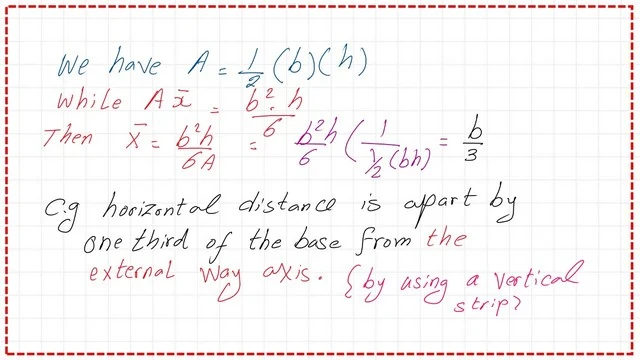 We have A = 1/2 (b)(h)
While A x̄ = b². h/6
Then x̄ = b²h/6A = b²h/6 (1/½(bh) = b/3
C.g horizontal distance is apart by
one third of the base from the
external way axis. {by using a vertical
strip}